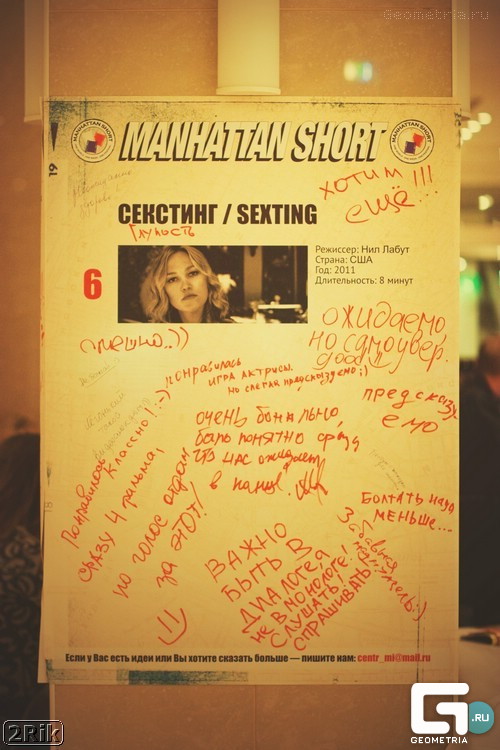 Geometria.ru
19
MANHATTAN SHORT
MANHATTAN SHORT
MANHATTAN SHORT
ХОТИМ
ЕЩЁ...!!!
СЕКСТИНГ / SEXTING
Глупость
6
Режиссер: Нил Лабут
Страна: США
Год: 2011
Длительность: 8 минут
смешно..))
ожидаемо,
но самоувер.
понравилась
игра актрисы.
но слегка предсказуемо;)
предсказу-
емо
очень бонально,
было понятно сразу
что нас ожидает
в конце.
Понравилось
классно! :-)
сразу 4 фильма,
но голос отдам
за ЭТОТ!
БОЛТАТЬ НАДО
МЕНЬШЕ...
ВАЖНО
БЫТЬ В
ДИАЛОГЕ а
НЕ В МОНОЛОГЕ!
СЛУШАТЬ!
СПРАШИВАТЬ
18
Если у Вас есть идеи или Вы хотите сказать больше — пишите нам: centr_mi@mail.ru
2Rik
G .RU
GEOMETRIA